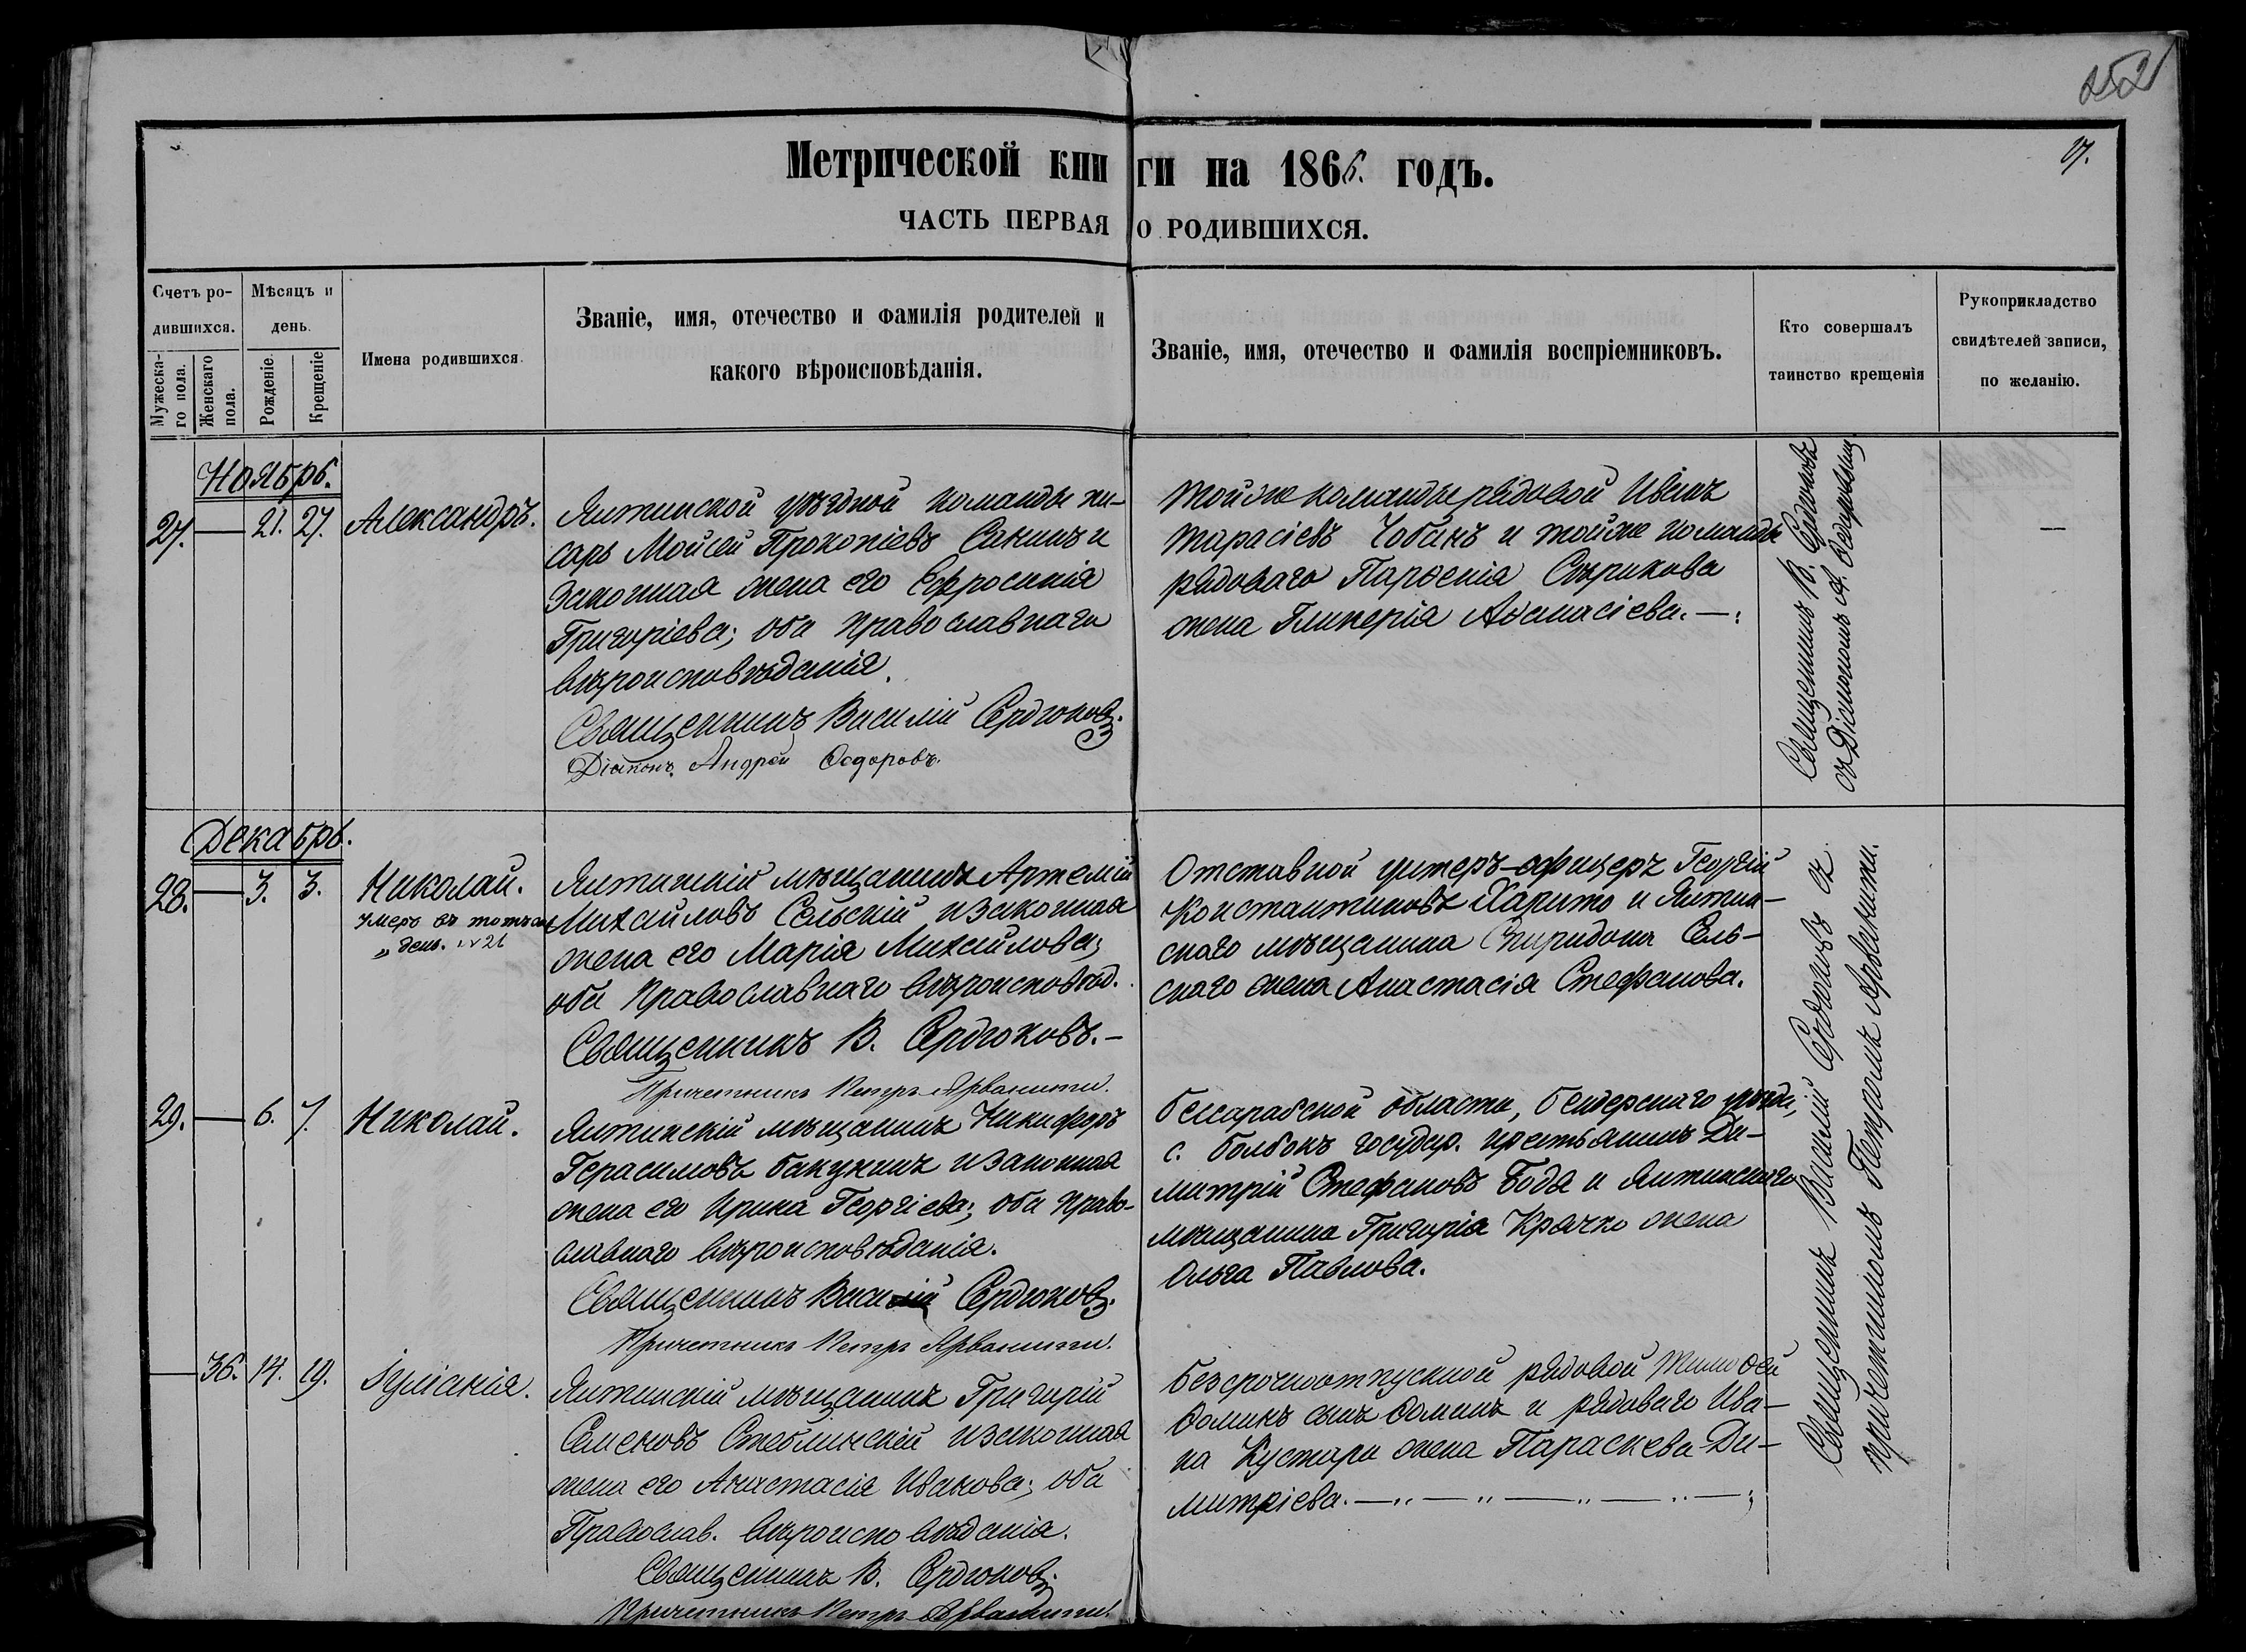 252
17.
Метрической книги на 1866. годъ.
ЧАСТЬ ПЕРВАЯ О РОДИВШИХСЯ.
Счетъ родившихся.
Мужеска-
го пола.
Женскаго
пола.
Мѣсяцъ и
день.
Рожденіе.
Крещеніе
Имена родившихся.
Званіе, имя, отечество и фамилія родителей и
какого вѣроисповѣданія.
Званіе, имя, отечество и фамилія воспріемниковъ.
Кто совершалъ
таинство крещенія
Рукоприкладство
свидѣтелей записи,
по желанію.
Ноябрь.
27. — 21. 27. Александръ.
Ялтинской уѣздной команды пи-
сарь Мойсей Прокопіевъ Сакинъ и
законная жена его Ефросинія
Григоріева; оба православнаго
вѣроисповѣданія.
Священникъ Василій Сердюковъ.
Діаконъ Андрей Ѳедоровъ.
тойже команды рядовой Иванъ
Тарасіевъ Чобанъ и тойже команды
рядоваго Парѳенія Сѣрикова
жена Гликерія Аѳанасіева. —:
Священникъ В. Сердюковъ
съ Діакономъ А.
—
Декабрь.
28. — 3. 3. Николай.
умеръ въ тотъ же
„ день.
Ялтинскій мѣщанинъ Артемій
Михайловъ Сельскій и законная
жена его Марія Михайлова;
оба Православнаго вѣроисповѣд.
Священникъ В. Сердюковъ. —
Причетникъ Петръ Арванити.
Отставной унтеръ-офицеръ Георгій
Константиновъ Харито и Ялтин-
скаго мѣщанина Спиридона Сель-
скаго жена Анастасія Стефанова.
29. — 6. 7. Николай.
Ялтинскій мѣщанинъ Никифоръ
Герасимовъ Бакунинъ и законная
жена его Ирина Георгіева; оба право-
славнаго вѣроисповѣданія.
Священникъ Василій Сердюковъ.
Причетникъ Петръ Арванити.
Бессарабской области, Бендерскаго уѣзда,
с. Болбокъ государ. крестьянинъ Ди-
митрій Стефановъ Бодя и Ялтинскаго
мѣщанина Григорія Крачко жена
Ольга Павлова.
— 36. 14. 19. Іуліанія.
Ялтинскій мѣщанинъ Григорій
Семеновъ Стеблинскій и законная
жена его Анастасія Иванова; оба
Православ. вѣроисповѣданія.
Священникъ В. Сердюковъ.
Причетникъ Петръ Арванити.
Безсрочноотпускной рядовой Тимоѳей
Ѳоминъ сынъ Ѳоминъ и рядоваго Ива-
на Кустари жена Параскева Ди-
митріева. —„—„—„—„—;
Священникъ Василій Сердюковъ съ
причетникомъ Петромъ Арванити.